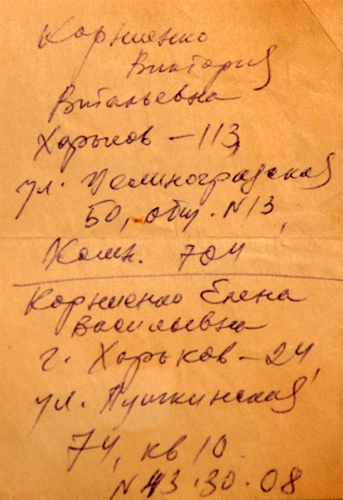 Корниенко
Виктория
Витальевна
Харьков - 113,
ул. Ленинградская
50, общ. N13,
Комн. 704
Корниенко Елена
Васильевна
г. Харьков - 24,
ул. Пушкинская,
74, кв 10.
N 43.30.08